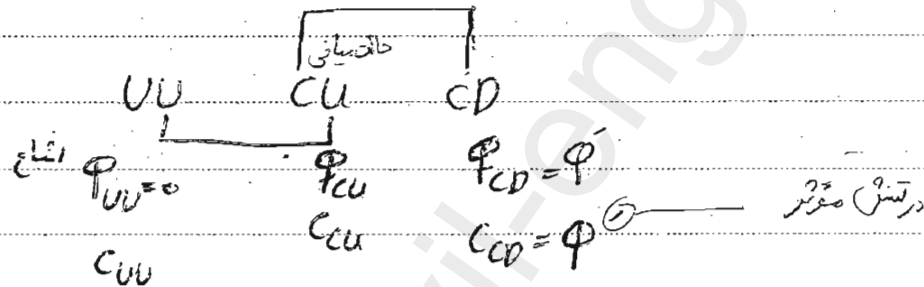 حالت میانی
UU CU CD
اشباع φUU=0 φCU φCD=φ'
CCU CCD=φ' در تنش مؤثر
CUU